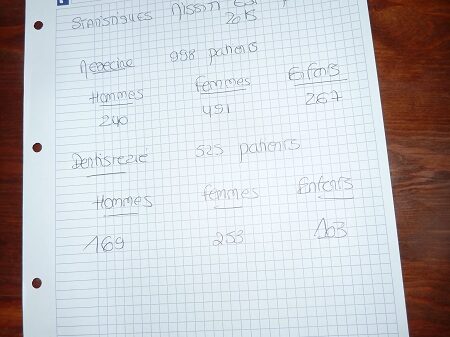 Statistiques Mission
2015
Medecine 998 patients
Hommes Femmes Enfants
240 491 267
Dentisterie 525 patients
Hommes femmes Enfants
169 253 103